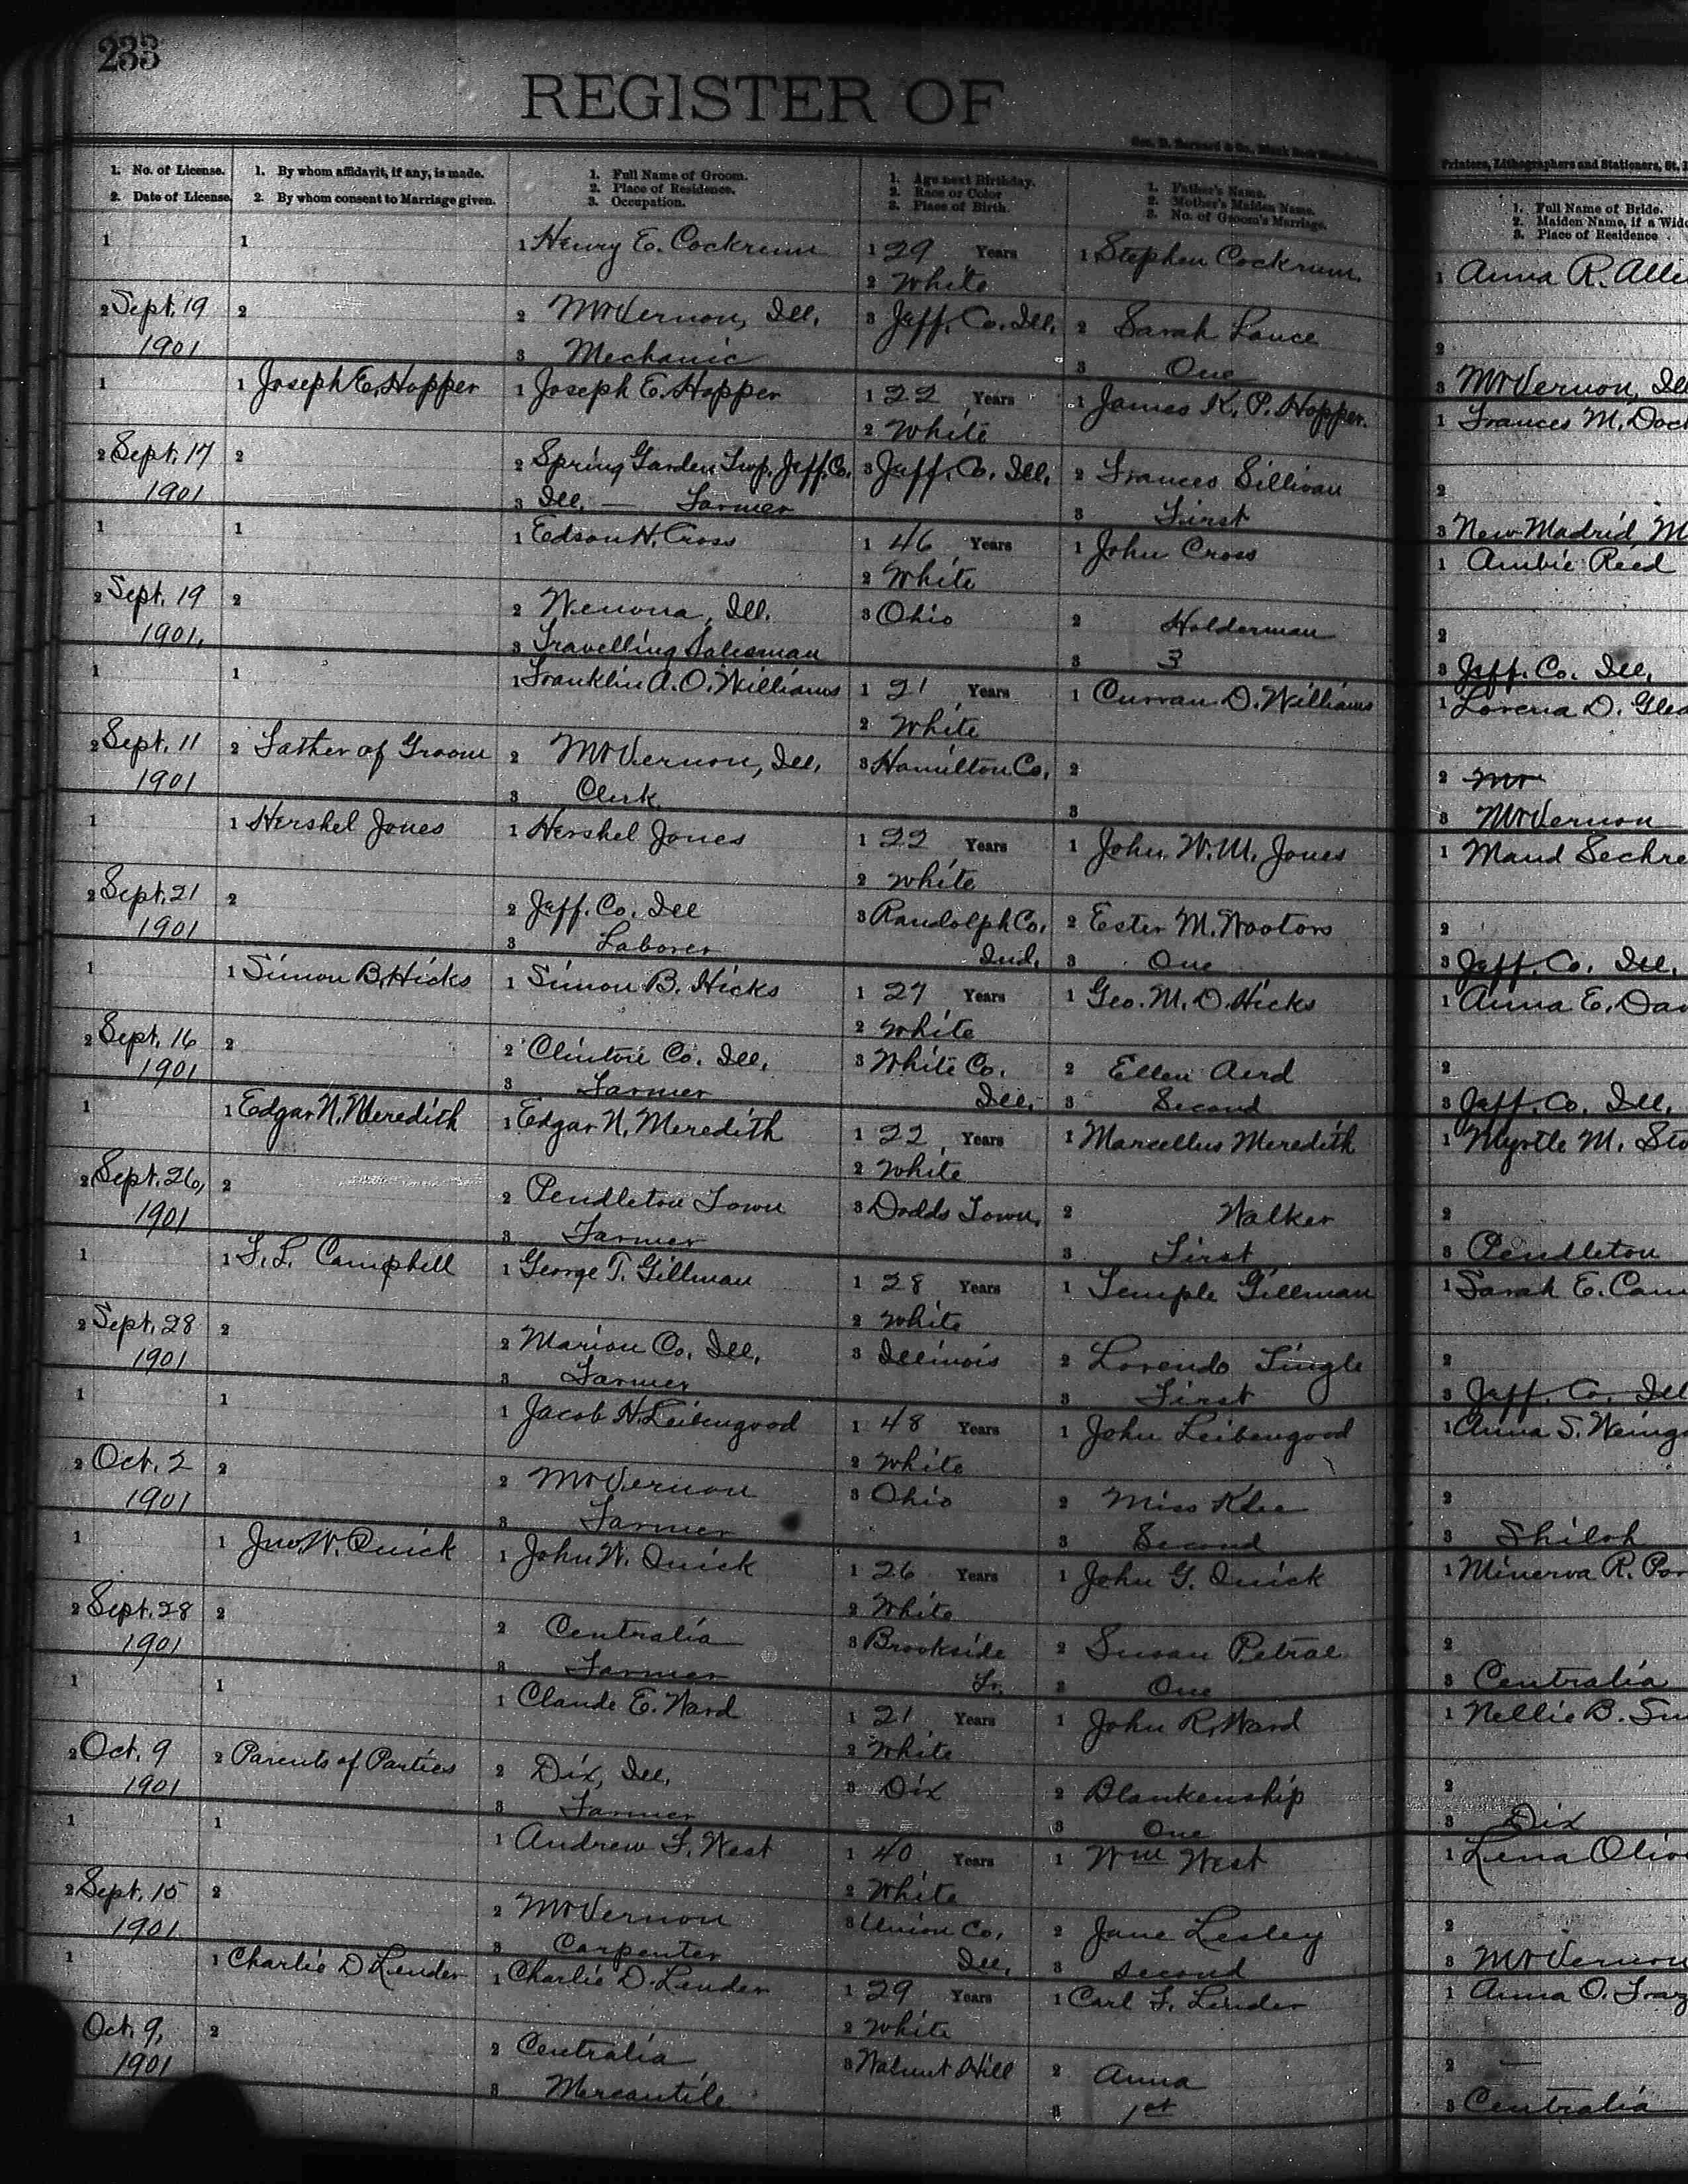 233
REGISTER OF
Geo. D. Barnard & Co.,
Printers, Lithographers and Stationers, St.
1. No. of License.
2. Date of License.
1. By whom affidavit, if any, is made.
2. By whom consent to Marriage given.
1. Full Name of Groom.
2. Place of Residence.
3. Occupation.
1. Age next Birthday.
2. Race or Color
3. Place of Birth.
1. Father's Name.
2. Mother's Maiden Name.
3. No. of Groom's Marriage.
1. Full Name of Bride.
2. Maiden Name, if a Wid
3. Place of Residence
1
2 Sept. 19
1901
1
2
1 Henry E. Cockrum
2 Mt Vernon, Ill.
3 Mechanic
1 29 Years
2 White
3 Jeff. Co. Ill.
1 Stephen Cockrum
2 Sarah Lance
3 One
1 Anna R. Alle
2
3 Mt Vernon, Ill
1
2 Sept. 17
1901
1 Joseph E. Hopper
2
1 Joseph E. Hopper
2 Spring Garden Twp. Jeff. Co.
3 Ill. — Farmer
1 22 Years
2 White
3 Jeff. Co. Ill.
1 James K. P. Hopper
2 Frances Sillivan
3 First
1 Frances M. Doc
2
3 New Madrid, M
1
2 Sept. 19
1901,
1
2
1 Edson H. Cross
2 Wenona, Ill.
3 Travelling Salesman
1 46 Years
2 White
3 Ohio
1 John Cross
2 Holderman
3 3
1 Ambie Reed
2
3 Jeff. Co. Ill.
1
2 Sept. 11
1901
1
2 Father of Groom
1 Franklin A. O. Williams
2 Mt Vernon, Ill.
3 Clerk
1 21 Years
2 White
3 Hamilton Co.
1 Curran D. Williams
2
3
1 Lorena D. Glea
2 Mt
3 Mt Vernon
1
2 Sept. 21
1901
1 Hershel Jones
2
1 Hershel Jones
2 Jeff. Co. Ill
3 Laborer
1 22 Years
2 White
3 Randolph Co.
Ind.
1 John W. M. Jones
2 Ester M. Wootors
3 One
1 Maud Sechre
2
3 Jeff. Co. Ill.
1
2 Sept. 16
1901
1 Simon B. Hicks
2
1 Simon B. Hicks
2 Clinton Co. Ill.
3 Farmer
1 27 Years
2 White
3 White Co.
Ill.
1 Geo. M. D. Hicks
2 Ellen Aird
3 Second
1 Anna E. Dav
2
3 Jeff. Co. Ill.
1
2 Sept. 26,
1901
1 Edgar N. Meredith
2
1 Edgar N. Meredith
2 Pendleton Town
3 Farmer
1 22 Years
2 White
3 Dodds Town
1 Marcellus Meredith
2 Walker
3 First
1 Myrtle M. Sto
2
3 Pendleton
1
2 Sept. 28
1901
1 F. L. Campbell
2
1 George T. Gillman
2 Marion Co. Ill.
3 Farmer
1 28 Years
2 White
3 Illinois
1 Temple Gillman
2 Lorendo Tingle
3 First
1 Sarah E. Cam
2
3 Jeff. Co. Ill
1
2 Oct. 2
1901
1
2
1 Jacob H. Leibengood
2 Mt Vernon
3 Farmer
1 48 Years
2 White
3 Ohio
1 John Leibengood
2 Miss Klee
3 Second
1 Anna S. Weing
2
3 Shiloh
1
2 Sept. 28
1901
1 Jno. W. Quick
2
1 John W. Quick
2 Centralia
3 Farmer
1 26 Years
2 White
3 Brookside
1 John G. Quick
2 Susan Petrae
3 One
1 Minerva R. Por
2
3 Centralia
1
2 Oct. 9
1901
1
2 Parents of Parties
1 Claude E. Ward
2 Dix, Ill.
3 Farmer
1 21 Years
2 White
3 Dix
1 John R. Ward
2 Blankenship
3 One
1 Nellie B.
2
3 Dix
1
2 Sept. 15
1901
1
2
1 Andrew F. West
2 Mt Vernon
3 Carpenter
1 40 Years
2 White
3 Union Co.
Ill.
1 Wm West
2 Jane Lesley
3 Second
1 Lena Oliv
2
3 Mt Vernon
1
Oct. 9,
1901
1 Charlie D Linder
2
1 Charlie D. Linder
2 Centralia
3 Mercantile
1 29 Years
2 White
3 Walnut Hill
1 Carl F. Linder
2 Anna
3 1st
1 Anna O. Fraz
2 —
3 Centralia